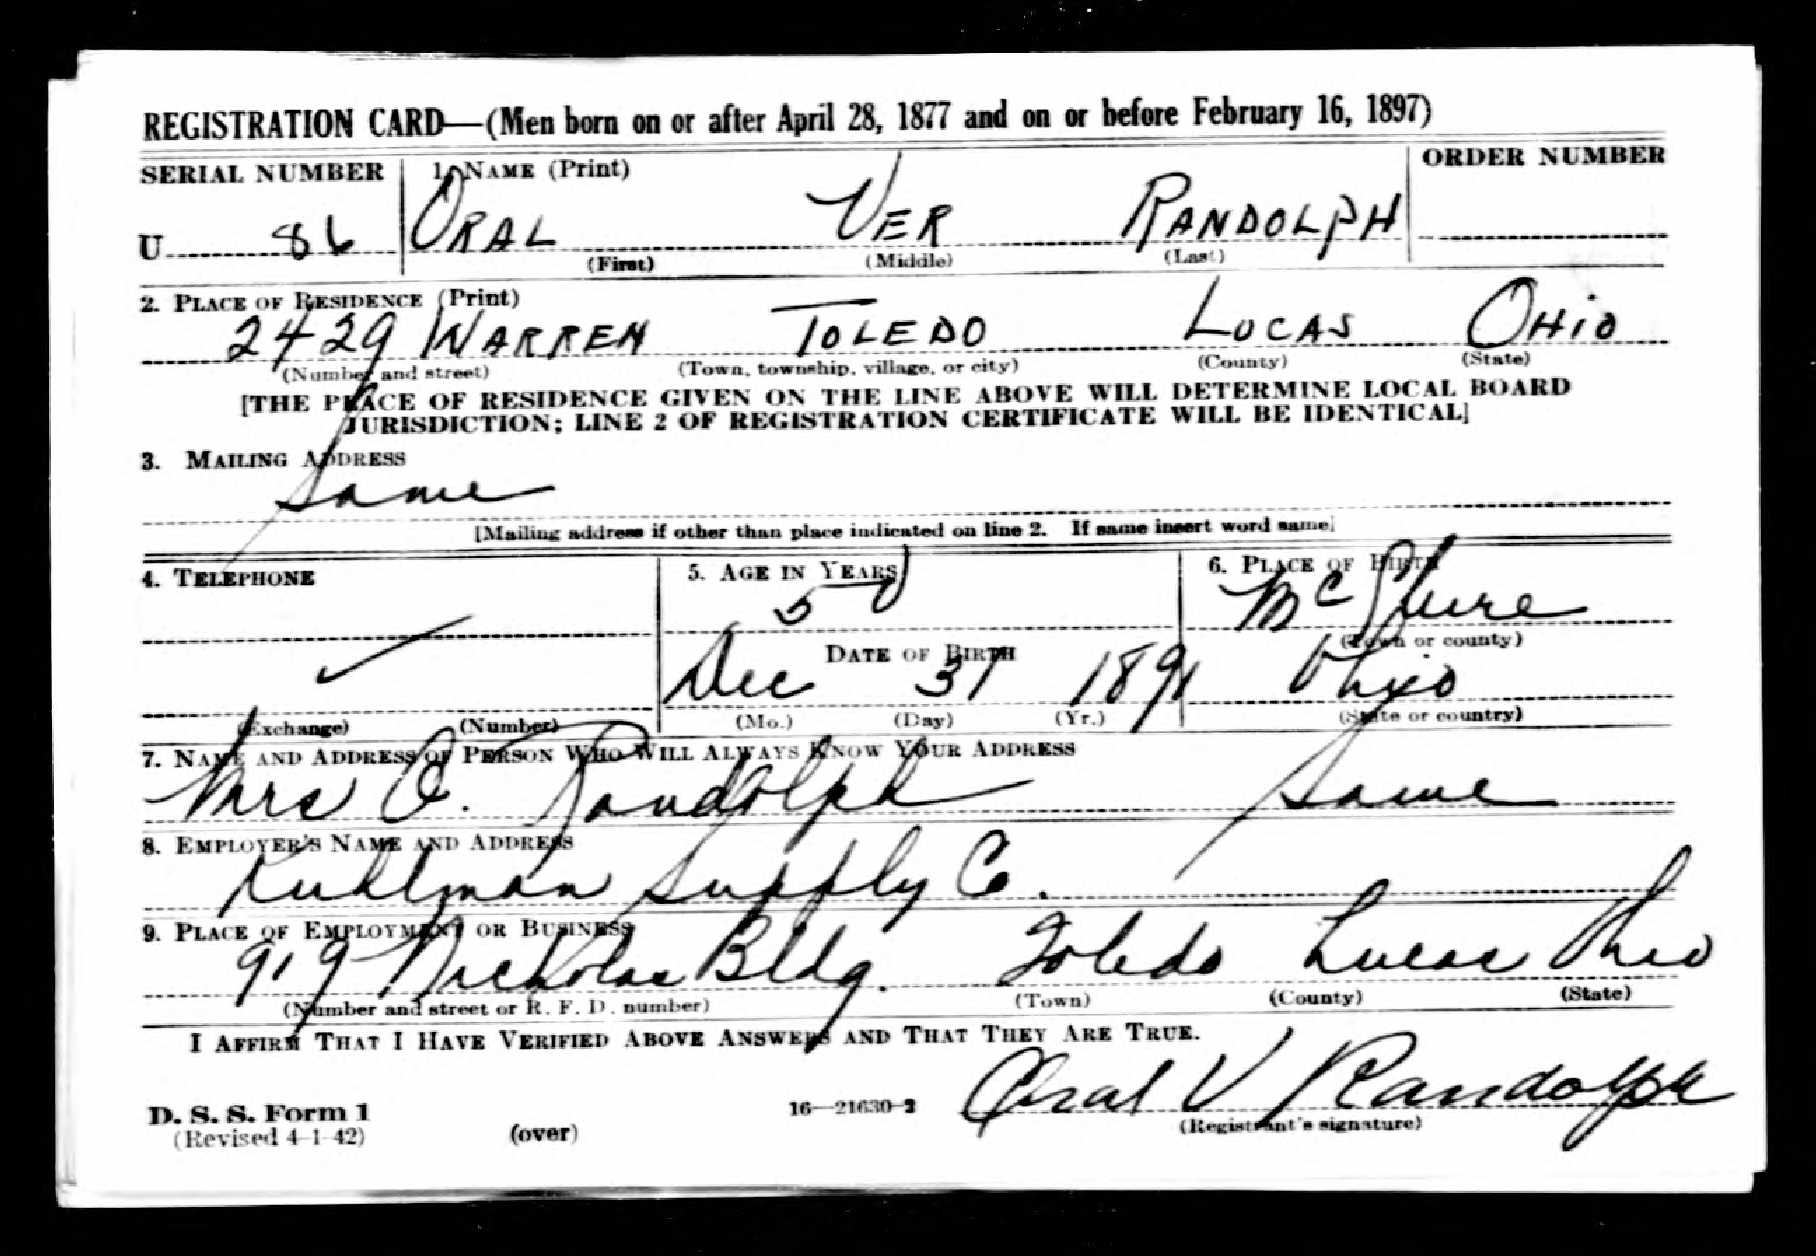 REGISTRATION CARD—(Men born on or after April 28, 1877 and on or before February 16, 1897)
SERIAL NUMBER 1. NAME (Print) ORDER NUMBER
U 86 ORAL VER RANDOLPH
(First) (Middle) (Last)
2. PLACE OF RESIDENCE (Print)
2429 WARREN TOLEDO LUCAS OHIO
(Number and street) (Town, township, village, or city) (County) (State)
[THE PLACE OF RESIDENCE GIVEN ON THE LINE ABOVE WILL DETERMINE LOCAL BOARD
JURISDICTION; LINE 2 OF REGISTRATION CERTIFICATE WILL BE IDENTICAL]
3. MAILING ADDRESS
Same
[Mailing address if other than place indicated on line 2. If same insert word same]
4. TELEPHONE 5. AGE IN YEARS 6. PLACE OF BIRTH
50 McClure
DATE OF BIRTH (Town or county)
Dec 31 1891 Ohio
(Exchange) (Number) (Mo.) (Day) (Yr.) (State or country)
7. NAME AND ADDRESS OF PERSON WHO WILL ALWAYS KNOW YOUR ADDRESS
Mrs O. Randolph Same
8. EMPLOYER'S NAME AND ADDRESS
Kuhlman Supply Co.
9. PLACE OF EMPLOYMENT OR BUSINESS
919 Nicholas Bldg. Toledo Lucas Ohio
(Number and street or R. F. D. number) (Town) (County) (State)
I AFFIRM THAT I HAVE VERIFIED ABOVE ANSWERS AND THAT THEY ARE TRUE.
Oral V Randolph
D. S. S. Form 1 16—21630-2 (Registrant's signature)
(Revised 4-1-42) (over)